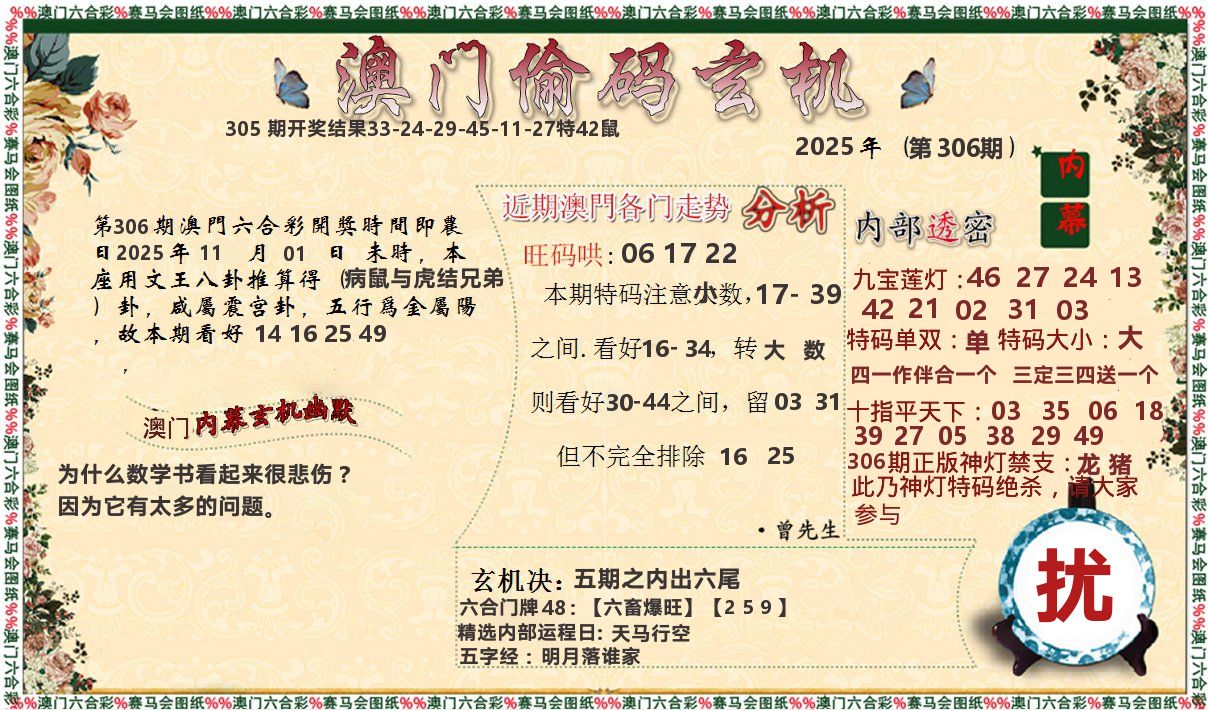 %%澳门六合彩%赛马会图纸%%澳门六合彩%赛马会图纸%%澳门六合彩%赛马会图纸%%澳门六合彩%赛马会图纸%%澳门六合彩%赛马会图纸%%澳门六合彩%赛马会图纸%%
澳门偷码玄机
305 期开奖结果33-24-29-45-11-27特42鼠
2025 年 (第 306期 )
内幕
第306 期澳門六合彩開獎時間即農
日2025 年 11 月 01 日 来時，本
座用文王八卦推算得 (病鼠与虎结兄弟
) 卦，咸屬震宫卦，五行爲金屬陽
，故本期看好 14 16 25 49
，
澳门 内幕玄机幽默
为什么数学书看起来很悲伤？
因为它有太多的问题。
近期澳門各门走势 分析
旺码哄: 06 17 22
本期特码注意小数，17- 39
之间. 看好16- 34，转 大 数
则看好30-44之间，留 03 31
但不完全排除 16 25
·曾先生
内部透密
九宝莲灯 : 46 27 24 13
42 21 02 31 03
特码单双 : 单 特码大小 : 大
四一作伴合一个 三定三四送一个
十指平天下 : 03 35 06 18
39 27 05 38 29 49
306期正版神灯禁支 : 龙 猪
此乃神灯特码绝杀，请大家
参与
扰
玄机决: 五期之内出六尾
六合门牌 48 : 【六畜爆旺】【2 5 9 】
精选内部运程日: 天马行空
五字经 : 明月落谁家
%%澳门六合彩%赛马会图纸%%澳门六合彩%赛马会图纸%%澳门六合彩%赛马会图纸%%澳门六合彩%赛马会图纸%%澳门六合彩%赛马会图纸%%澳门六合彩%赛马会图纸%%